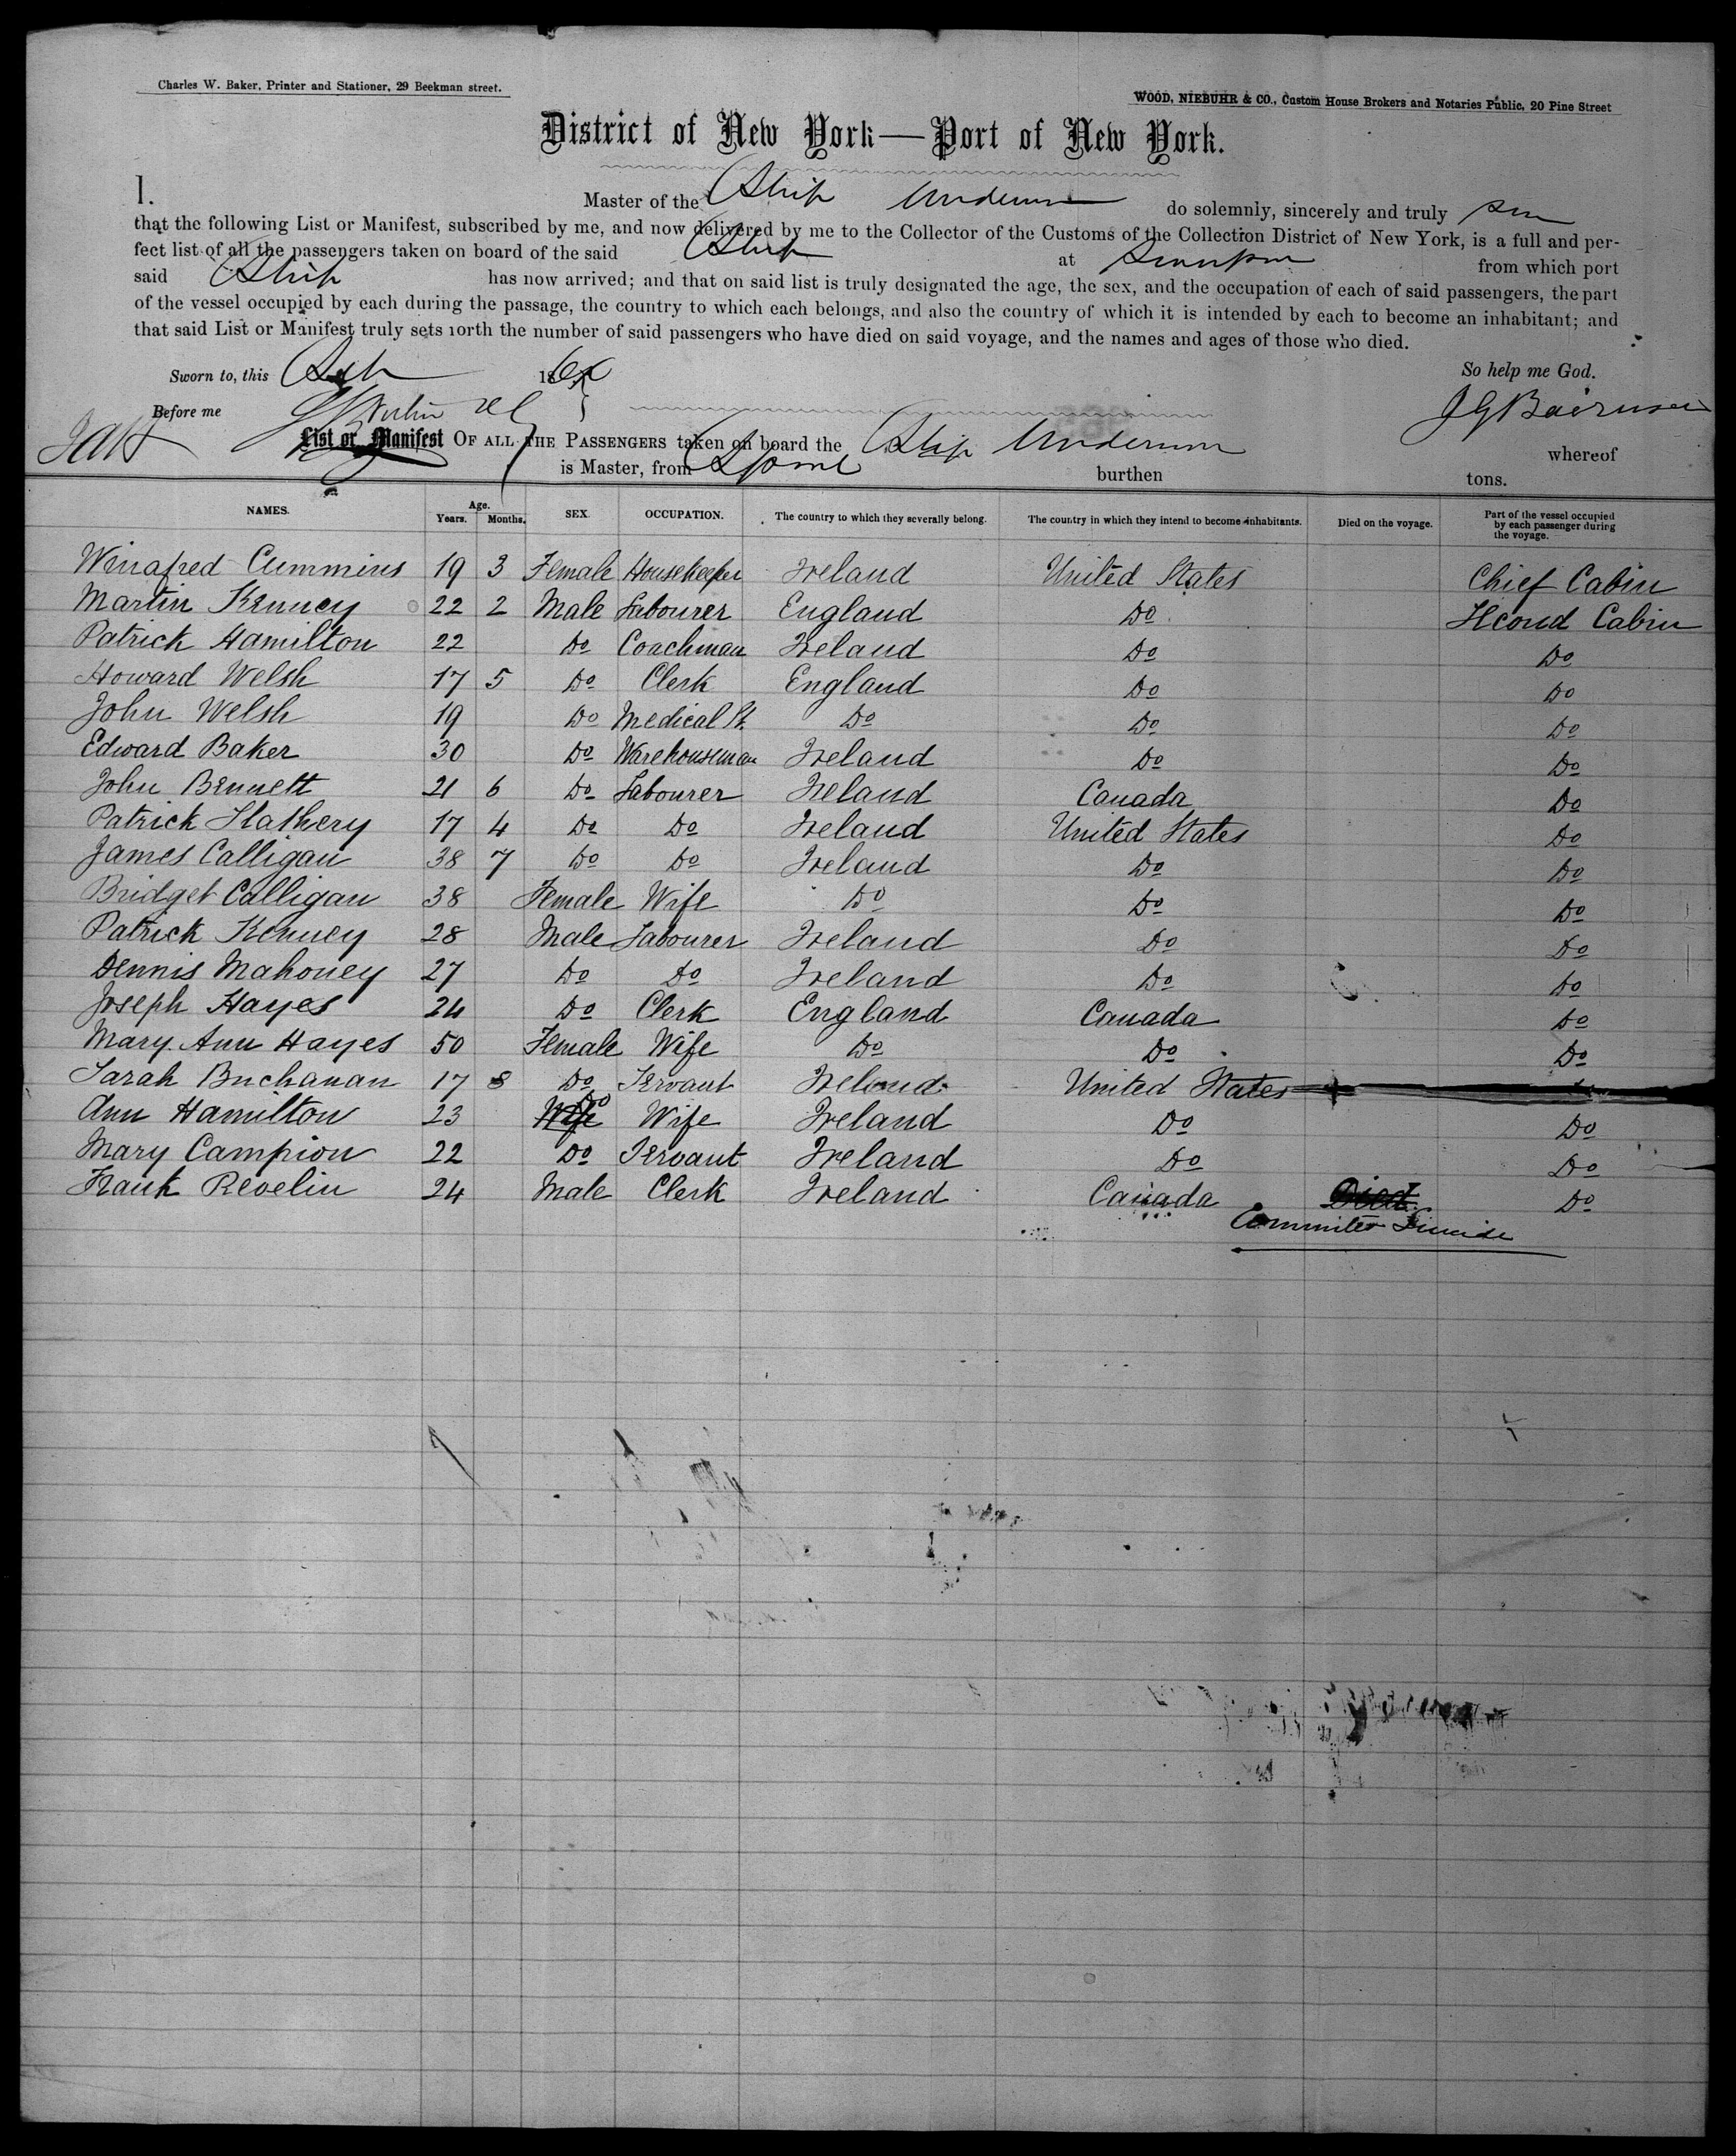 Charles W. Baker, Printer and Stationer, 29 Beekman street.
WOOD, NIEBUHR & CO., Custom House Brokers and Notaries Public, 20 Pine Street
District of New York—Port of New York.
I. Master of the Ship do solemnly, sincerely and truly
that the following List or Manifest, subscribed by me, and now delivered by me to the Collector of the Customs of the Collection District of New York, is a full and per-
fect list of all the passengers taken on board of the said Ship at from which port
said Ship has now arrived; and that on said list is truly designated the age, the sex, and the occupation of each of said passengers, the part
of the vessel occupied by each during the passage, the country to which each belongs, and also the country of which it is intended by each to become an inhabitant; and
that said List or Manifest truly sets forth the number of said passengers who have died on said voyage, and the names and ages of those who died.
Sworn to, this 18 So help me God.
Before me
List or Manifest OF ALL THE PASSENGERS taken on board the Ship whereof
is Master, from burthen tons.
NAMES. Age. Years. Months. SEX. OCCUPATION. The country to which they severally belong. The country in which they intend to become inhabitants. Died on the voyage. Part of the vessel occupied by each passenger during the voyage.
Winafred Cummins 19 3 Female Housekeeper Ireland United States Chief Cabin
Martin Kenney 22 2 Male Labourer England Do Second Cabin
Patrick Hamilton 22 Do Coachman Ireland Do Do
Howard Welsh 17 5 Do Clerk England Do Do
John Welsh 19 Do Medical St. Do Do Do
Edward Baker 30 Do Warehouseman Ireland Do Do
John Bennett 21 6 Do Labourer Ireland Canada Do
Patrick Slathery 17 4 Do Do Ireland United States Do
James Calligan 38 7 Do Do Ireland Do Do
Bridget Calligan 38 Female Wife Do Do Do
Patrick Kenney 28 Male Labourer Ireland Do Do
Dennis Mahoney 27 Do Do Ireland Do Do
Joseph Hayes 24 Do Clerk England Canada Do
Mary Ann Hayes 50 Female Wife Do Do Do
Sarah Buchanan 17 8 Do Servant Ireland United States
Ann Hamilton 23 Wife Do Wife Ireland Do Do
Mary Campion 22 Do Servant Ireland Do Do
Frank Revelin 24 Male Clerk Ireland Canada Died Do
Committed Suicide